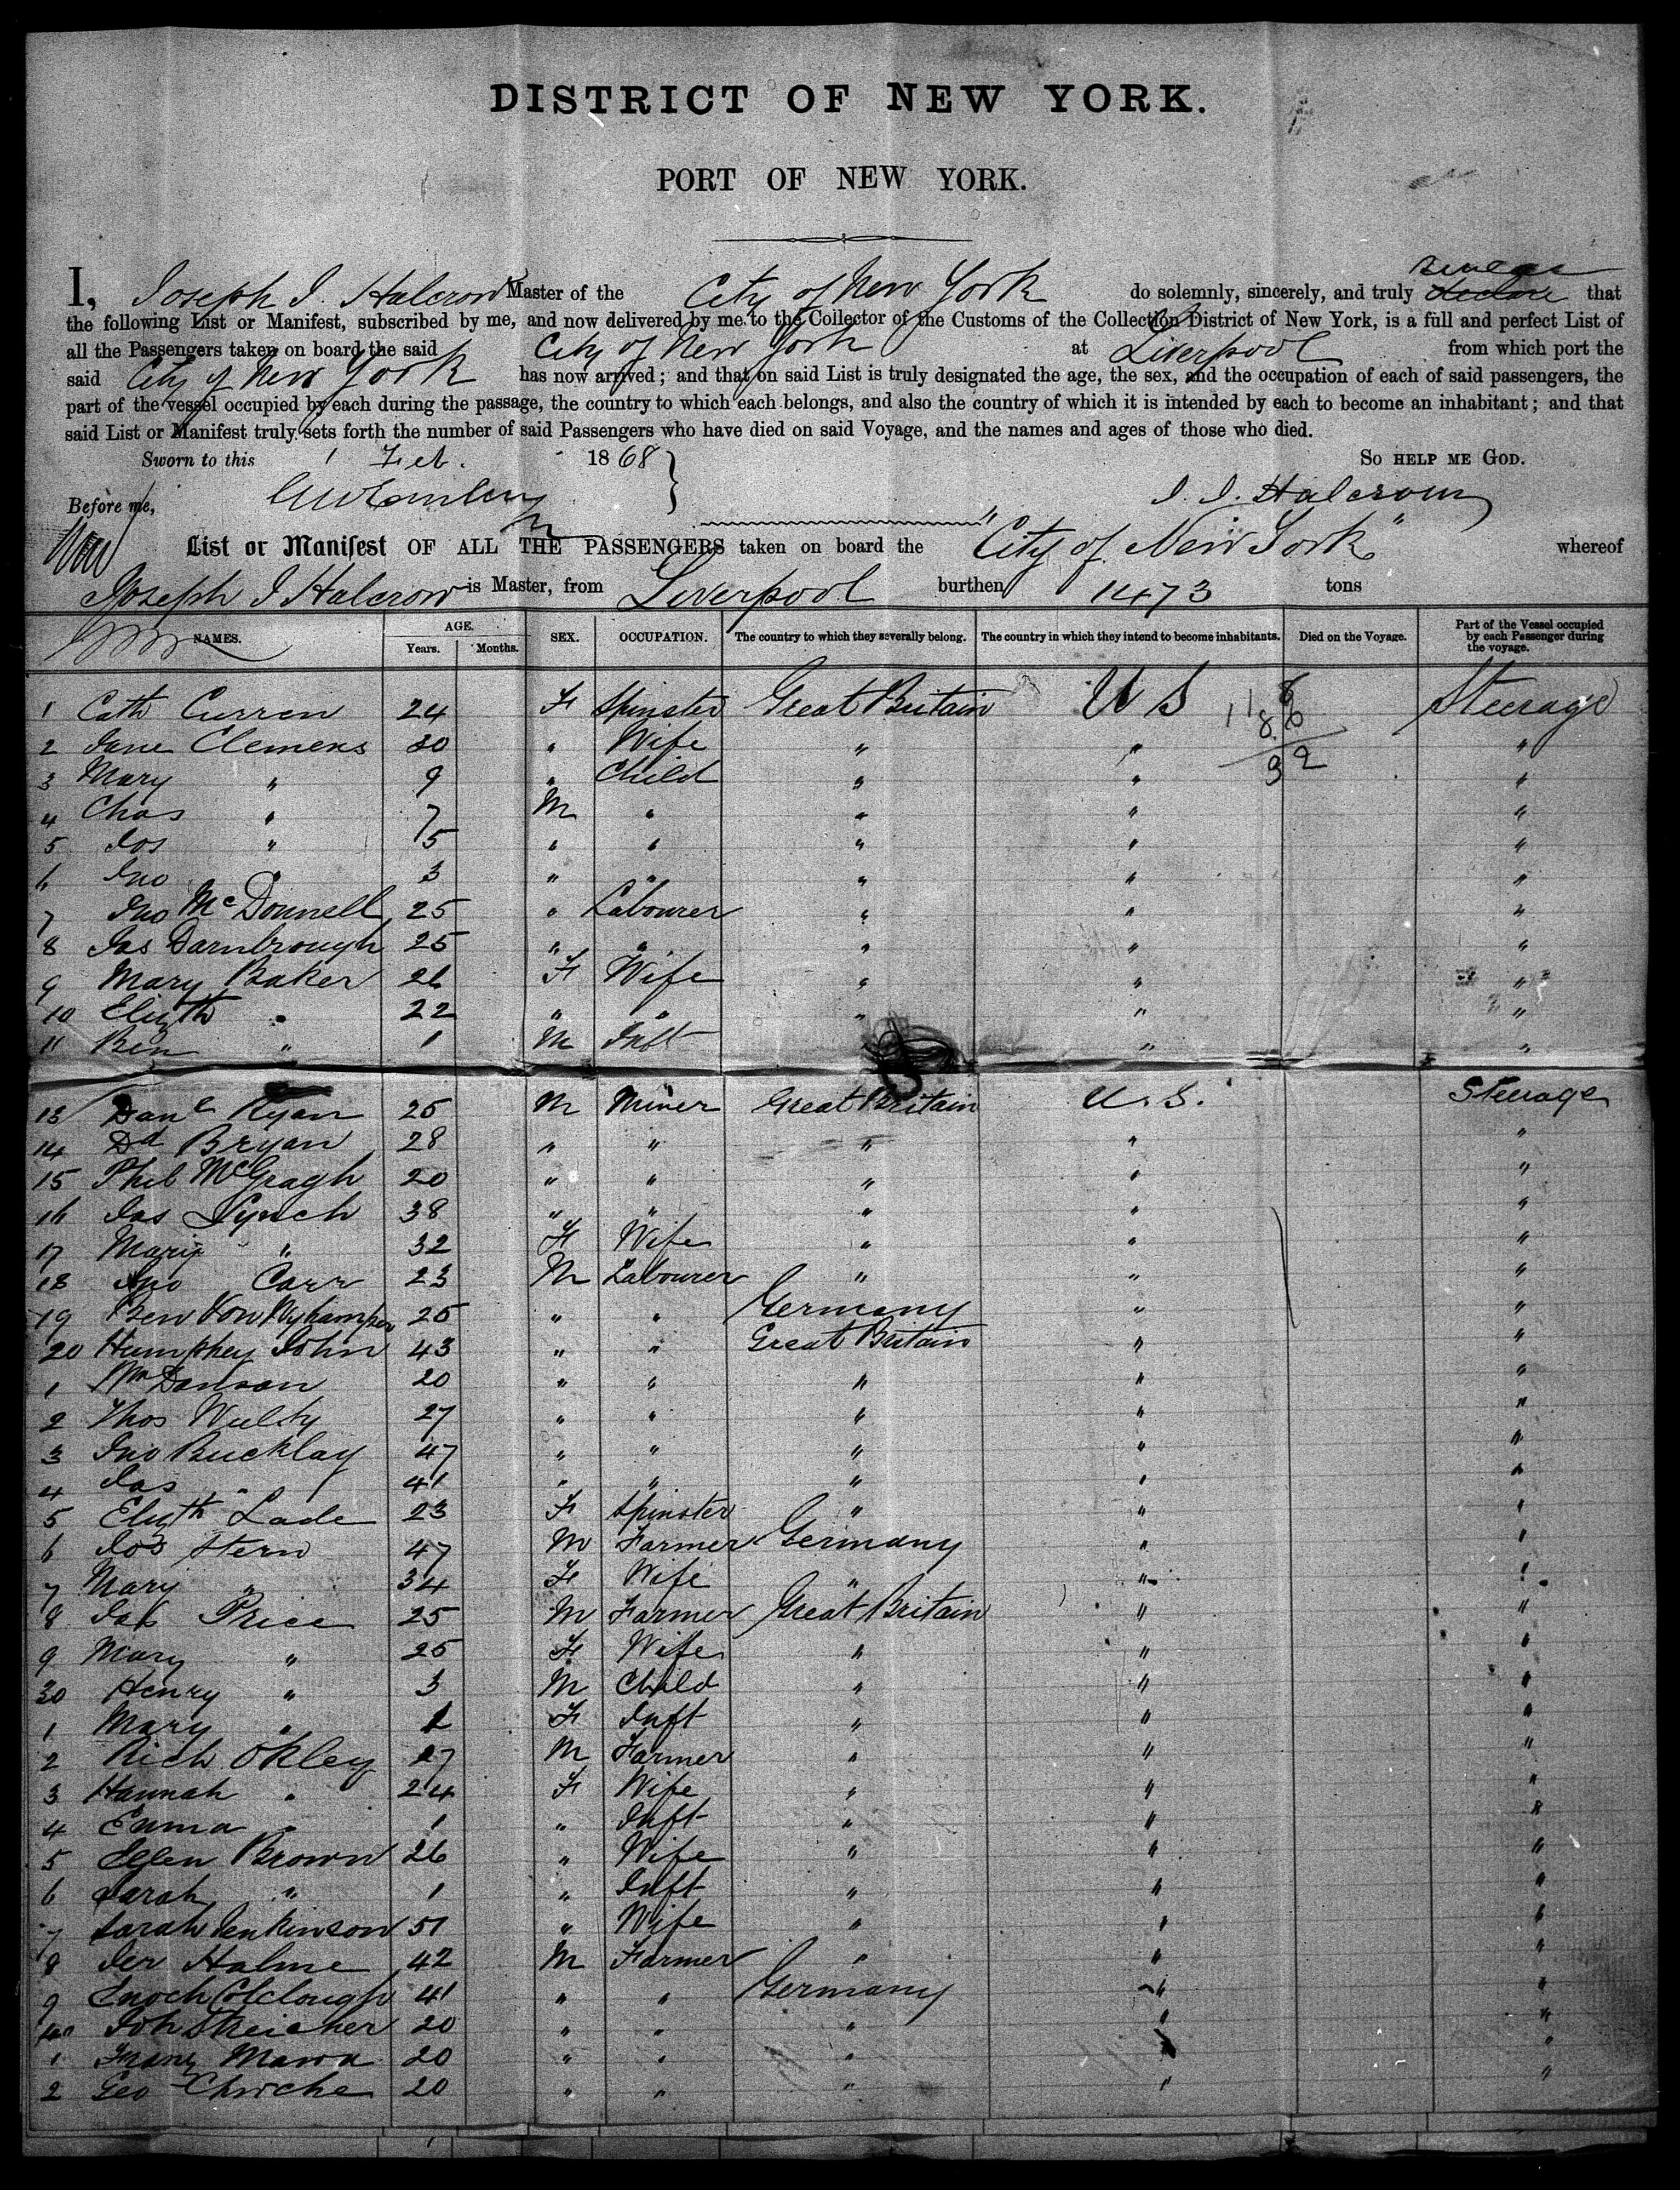 DISTRICT OF NEW YORK.
PORT OF NEW YORK.
I, Joseph J. Halcrow Master of the City of New York do solemnly, sincerely, and truly declare that
the following List or Manifest, subscribed by me, and now delivered by me to the Collector of the Customs of the Collection District of New York, is a full and perfect List of
all the Passengers taken on board the said City of New York at Liverpool from which port the
said City of New York has now arrived; and that on said List is truly designated the age, the sex, and the occupation of each of said passengers, the
part of the vessel occupied by each during the passage, the country to which each belongs, and also the country of which it is intended by each to become an inhabitant; and that
said List or Manifest truly sets forth the number of said Passengers who have died on said Voyage, and the names and ages of those who died.
Sworn to this 1 Feb. 1868 SO HELP ME GOD.
Before me, J. J. Halcrow
List or Manifest OF ALL THE PASSENGERS taken on board the "City of New York" whereof
Joseph J Halcrow is Master, from Liverpool burthen 1473 tons
NAMES. AGE. Years. Months. SEX. OCCUPATION. The country to which they severally belong. The country in which they intend to become inhabitants. Died on the Voyage. Part of the Vessel occupied by each Passenger during the voyage.
1 Cath Curren 24 F Spinster Great Britain U S Steerage
2 Jane Clemens 30 " Wife " " "
3 Mary " 9 " Child " " "
4 Chas " 7 M " " " "
5 Jos " 5 " " " " "
6 Jno " 3 " " " " "
7 Jno McDonnell 25 " Labourer " " "
8 Jas Darnbrough 25 " " " " "
9 Mary Baker 26 F Wife " " "
10 Elizth " 22 " " " " "
11 Ben " 1 M Inft " " "
13 Danl Ryan 25 M Miner Great Britain U.S. Steerage
14 Dd Bryan 28 " " " " "
15 Phil McGragh 20 " " " " "
16 Jas Lynch 38 " " " " "
17 Mary " 32 F Wife " " "
18 Jno Carr 23 M Labourer " " "
19 Ben Von 25 " " Germany " "
20 Humphey John 43 " " Great Britain " "
1 Wm Danson 20 " " " " "
2 Thos Wulty 27 " " " " "
3 Jno Bucklay 47 " " " " "
4 Jas " 41 " " " " "
5 Elizth Lade 23 F Spinster " " "
6 Jos Stern 47 M Farmer Germany " "
7 Mary " 34 F Wife " " "
8 Jas Price 25 M Farmer Great Britain " "
9 Mary " 25 F Wife " " "
30 Henry " 3 M Child " " "
1 Mary " 1 F Inft " " "
2 Rich Okley 27 M Farmer " " "
3 Hannah " 24 F Wife " " "
4 Emma " 1 " Inft " " "
5 Ellen Brown 26 " Wife " " "
6 Sarah " 1 " Inft " " "
7 Sarah Jenkinson 51 " Wife " " "
8 Jer Halme 42 M Farmer " " "
9 Enoch Colclough 41 " " Germany " "
40 Joh Streicher 20 " " " " "
1 Franz Mawa 20 " " " " "
2 Geo 20 " " " " "